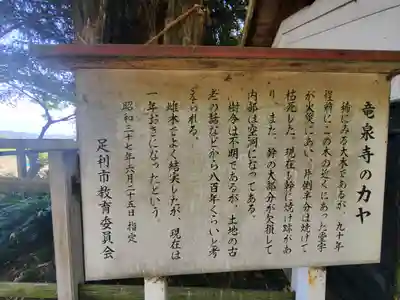 竜泉寺のカヤ
稀にみる大木であるが、九十年
程前にこの木の近くにあった堂宇
が火災にあい、片側半分は焼けて
枯死した。現在も幹に焼け跡があ
り、また、幹の大部分が欠損して
内部は空洞になってある。
樹令は不明であるが、土地の古
老の話などから八百年くらいと考
えられる。
雌木でよく結実したが、現在は
一年おきになったという。
昭和三十七年六月二十五日 指定
足利市教育委員会